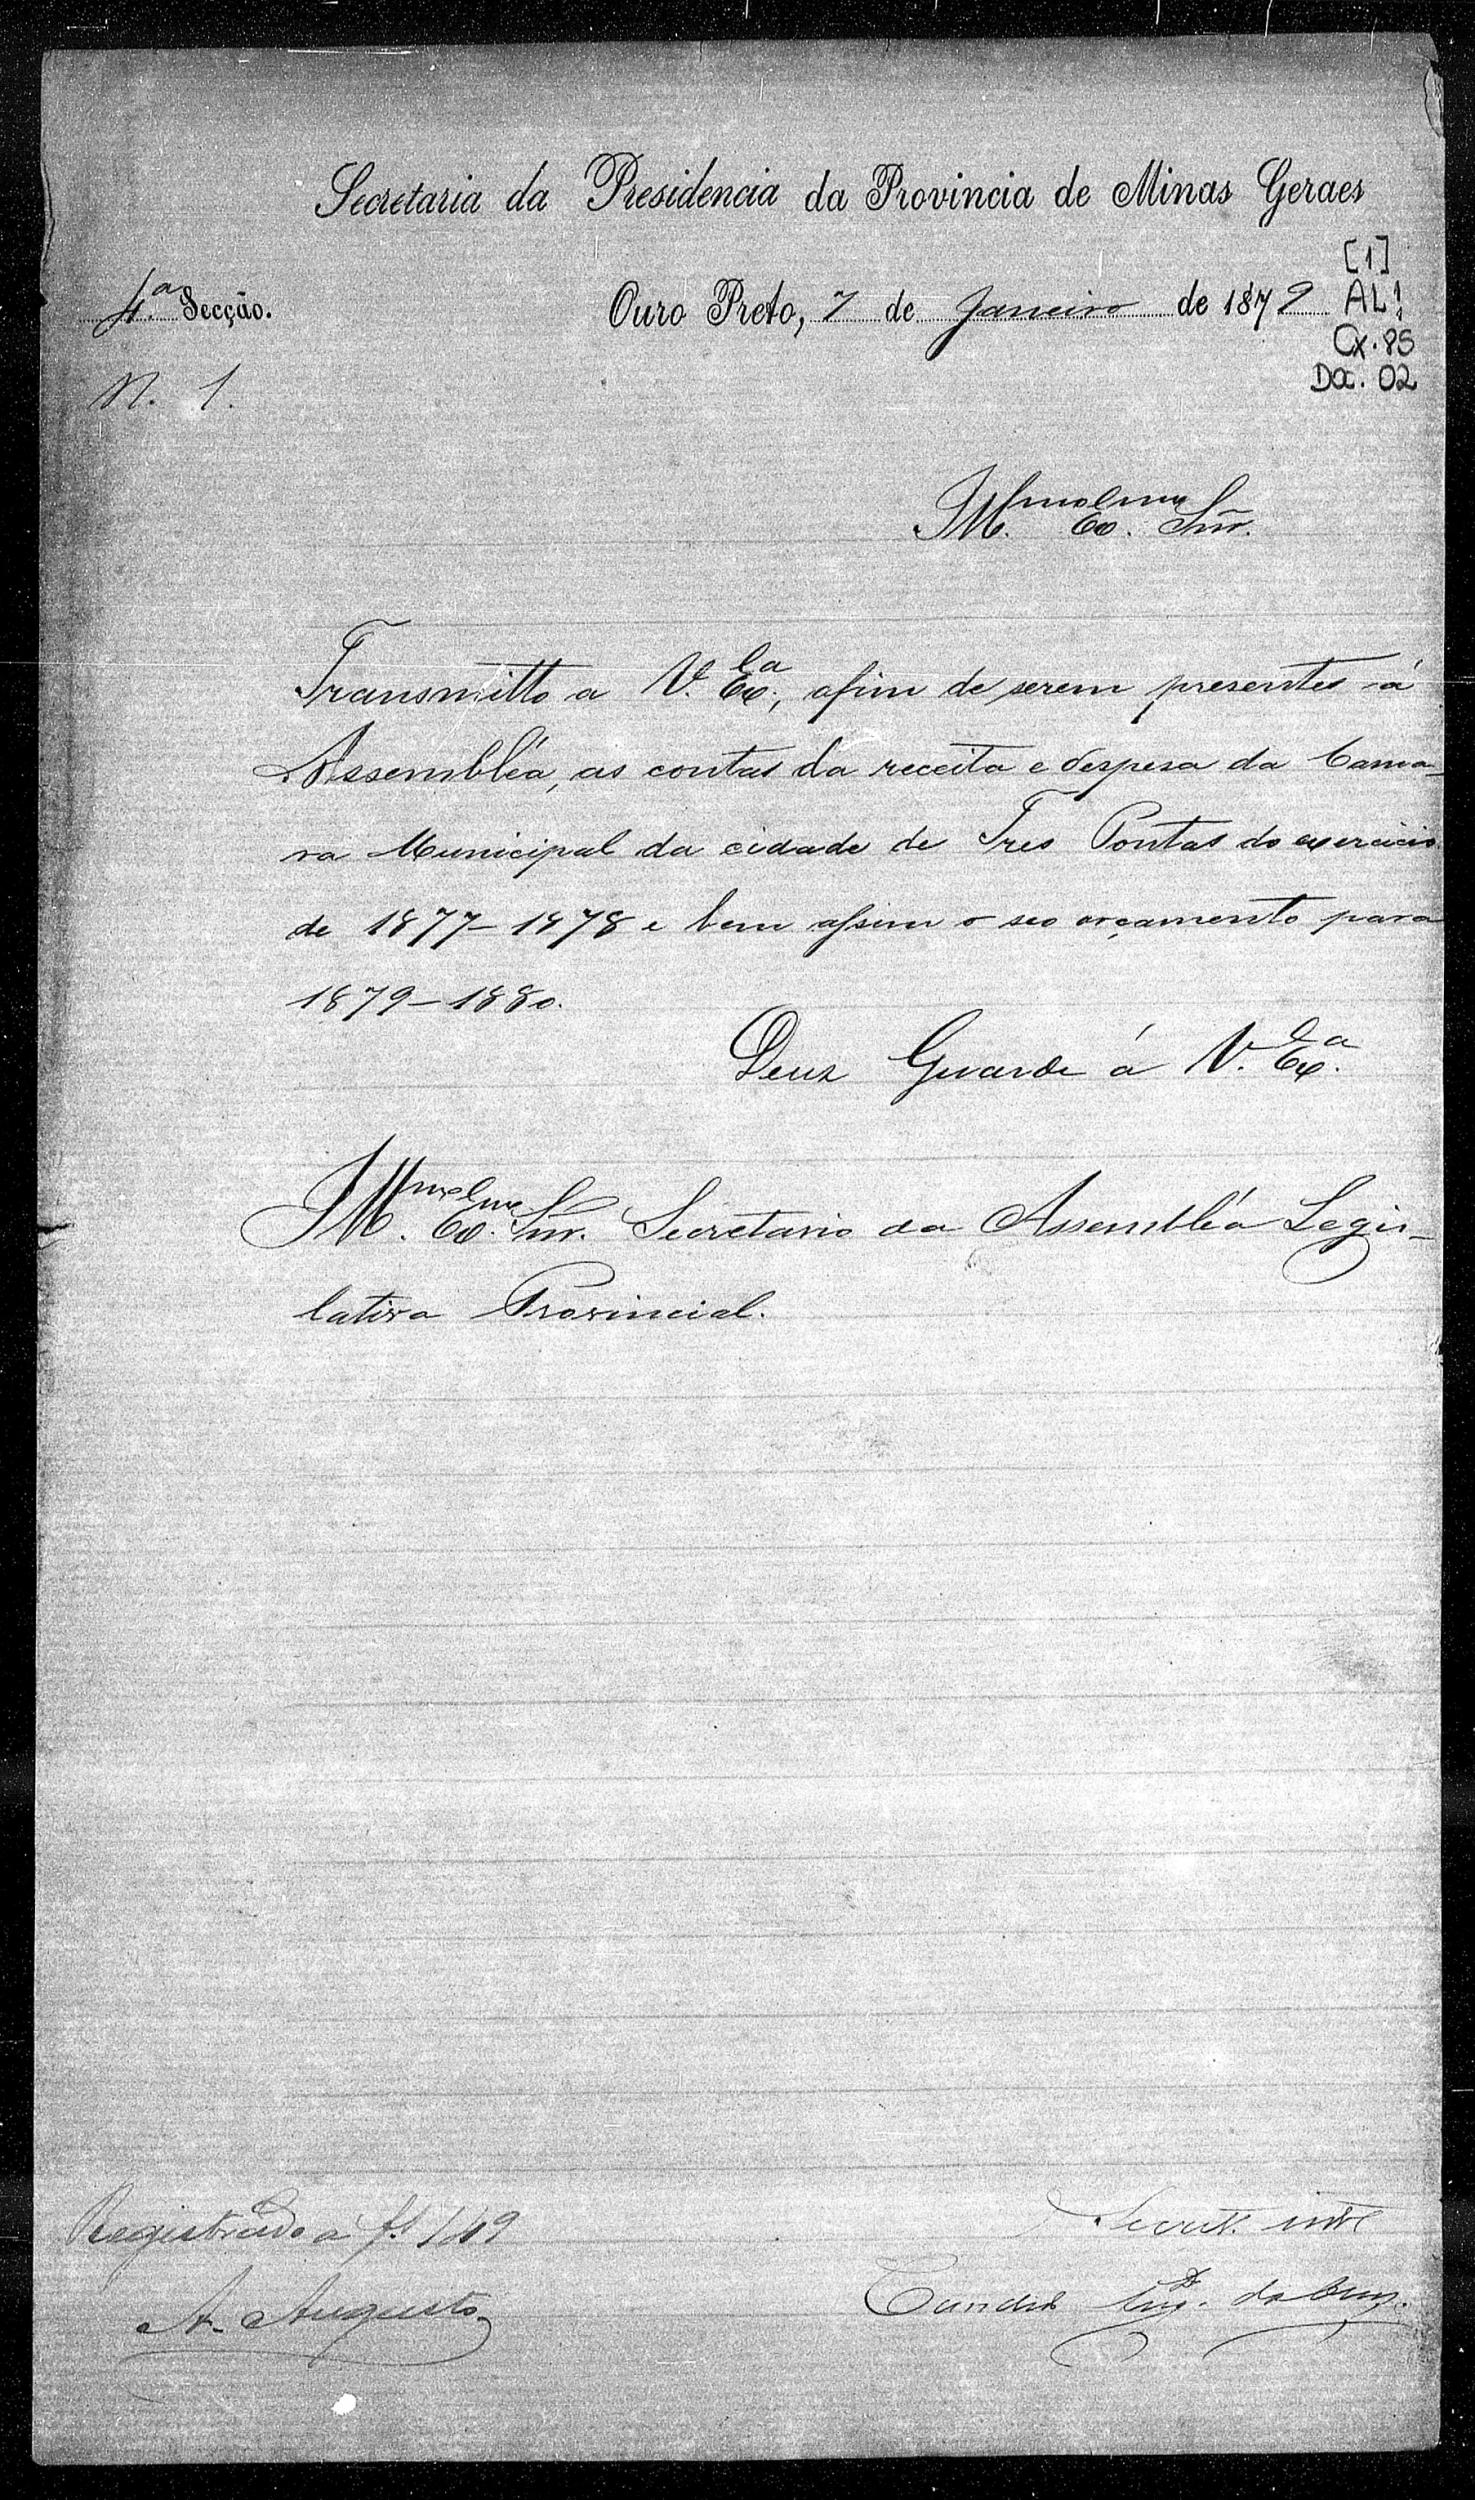 Secretaria da Presidencia da Provincia de Minas Geraes
[1]
4.ª Secção. Ouro Preto, 7 de Janeiro de 1879 AL1
Cx. 85
N. 1. Doc. 02
Illmo Exmo Snr.
Transmitto a V. Exa., afim de serem presentes á
Assembléa, as contas da receita e despesa da Cama-
ra Municipal da cidade de Tres Pontas do exercicio
de 1877-1878 e bem assim o seo orçamento para
1879-1880.
Deus Guarde á V. Exa.
Illmo Exmo Snr. Secretario da Assembléa Legis-
lativa Provincial.
Registrado a fs 149
A. Augusto
Secret. inte
Candido da Cruz.